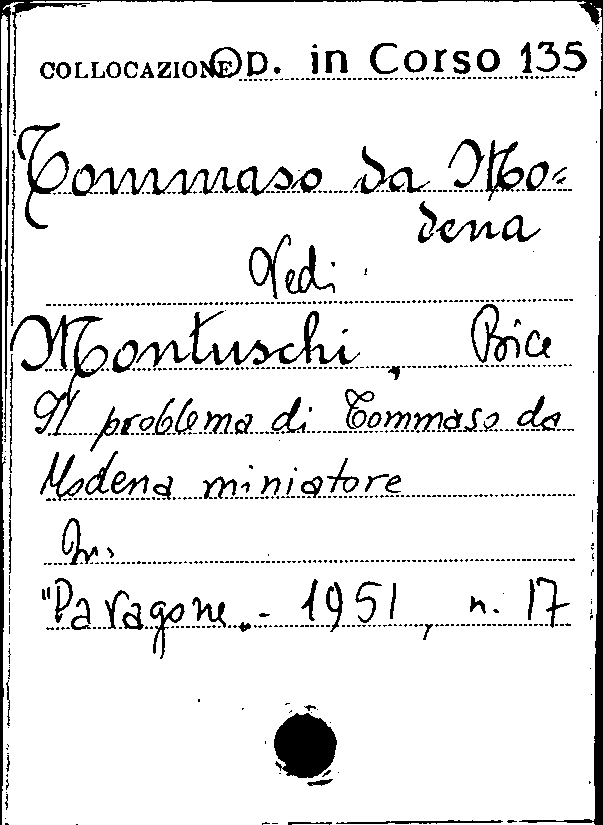 COLLOCAZIONE Op. in Corso 135
Tommaso da Mo=
dena
Vedi
Montuschi, Bice
Il problema di Tommaso da
Modena miniatore
In:
"Paragone„ - 1951, n. 17